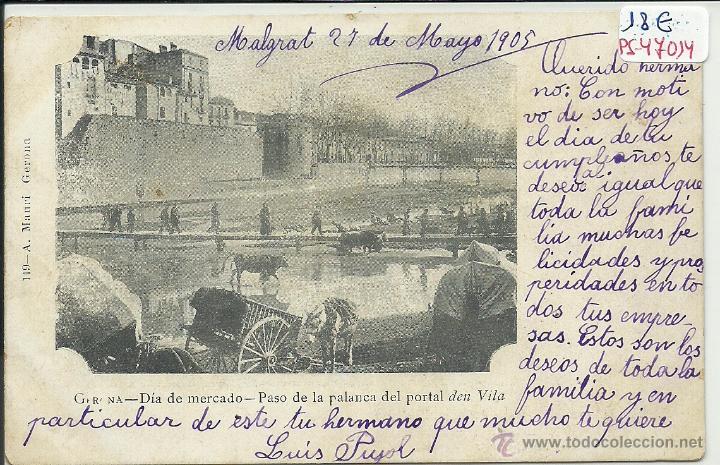 18 €
PS-47014
Malgrat 27 de Mayo 1905
Querido herma
no: Con moti
vo de ser hoy
el dia de tu
cumpleaños, te
deseo al igual que
toda la fami
lia muchas fe
licidades y pros
peridades en to
dos tus empre-
sas. Estos son los
deseos de toda la
familia y en
particular de este tu hermano que mucho te quiere
Luis Pujol
149—A. Mauri Gerona
GERONA—Día de mercado—Paso de la palanca del portal den Vila
todocoleccion
www.todocoleccion.net